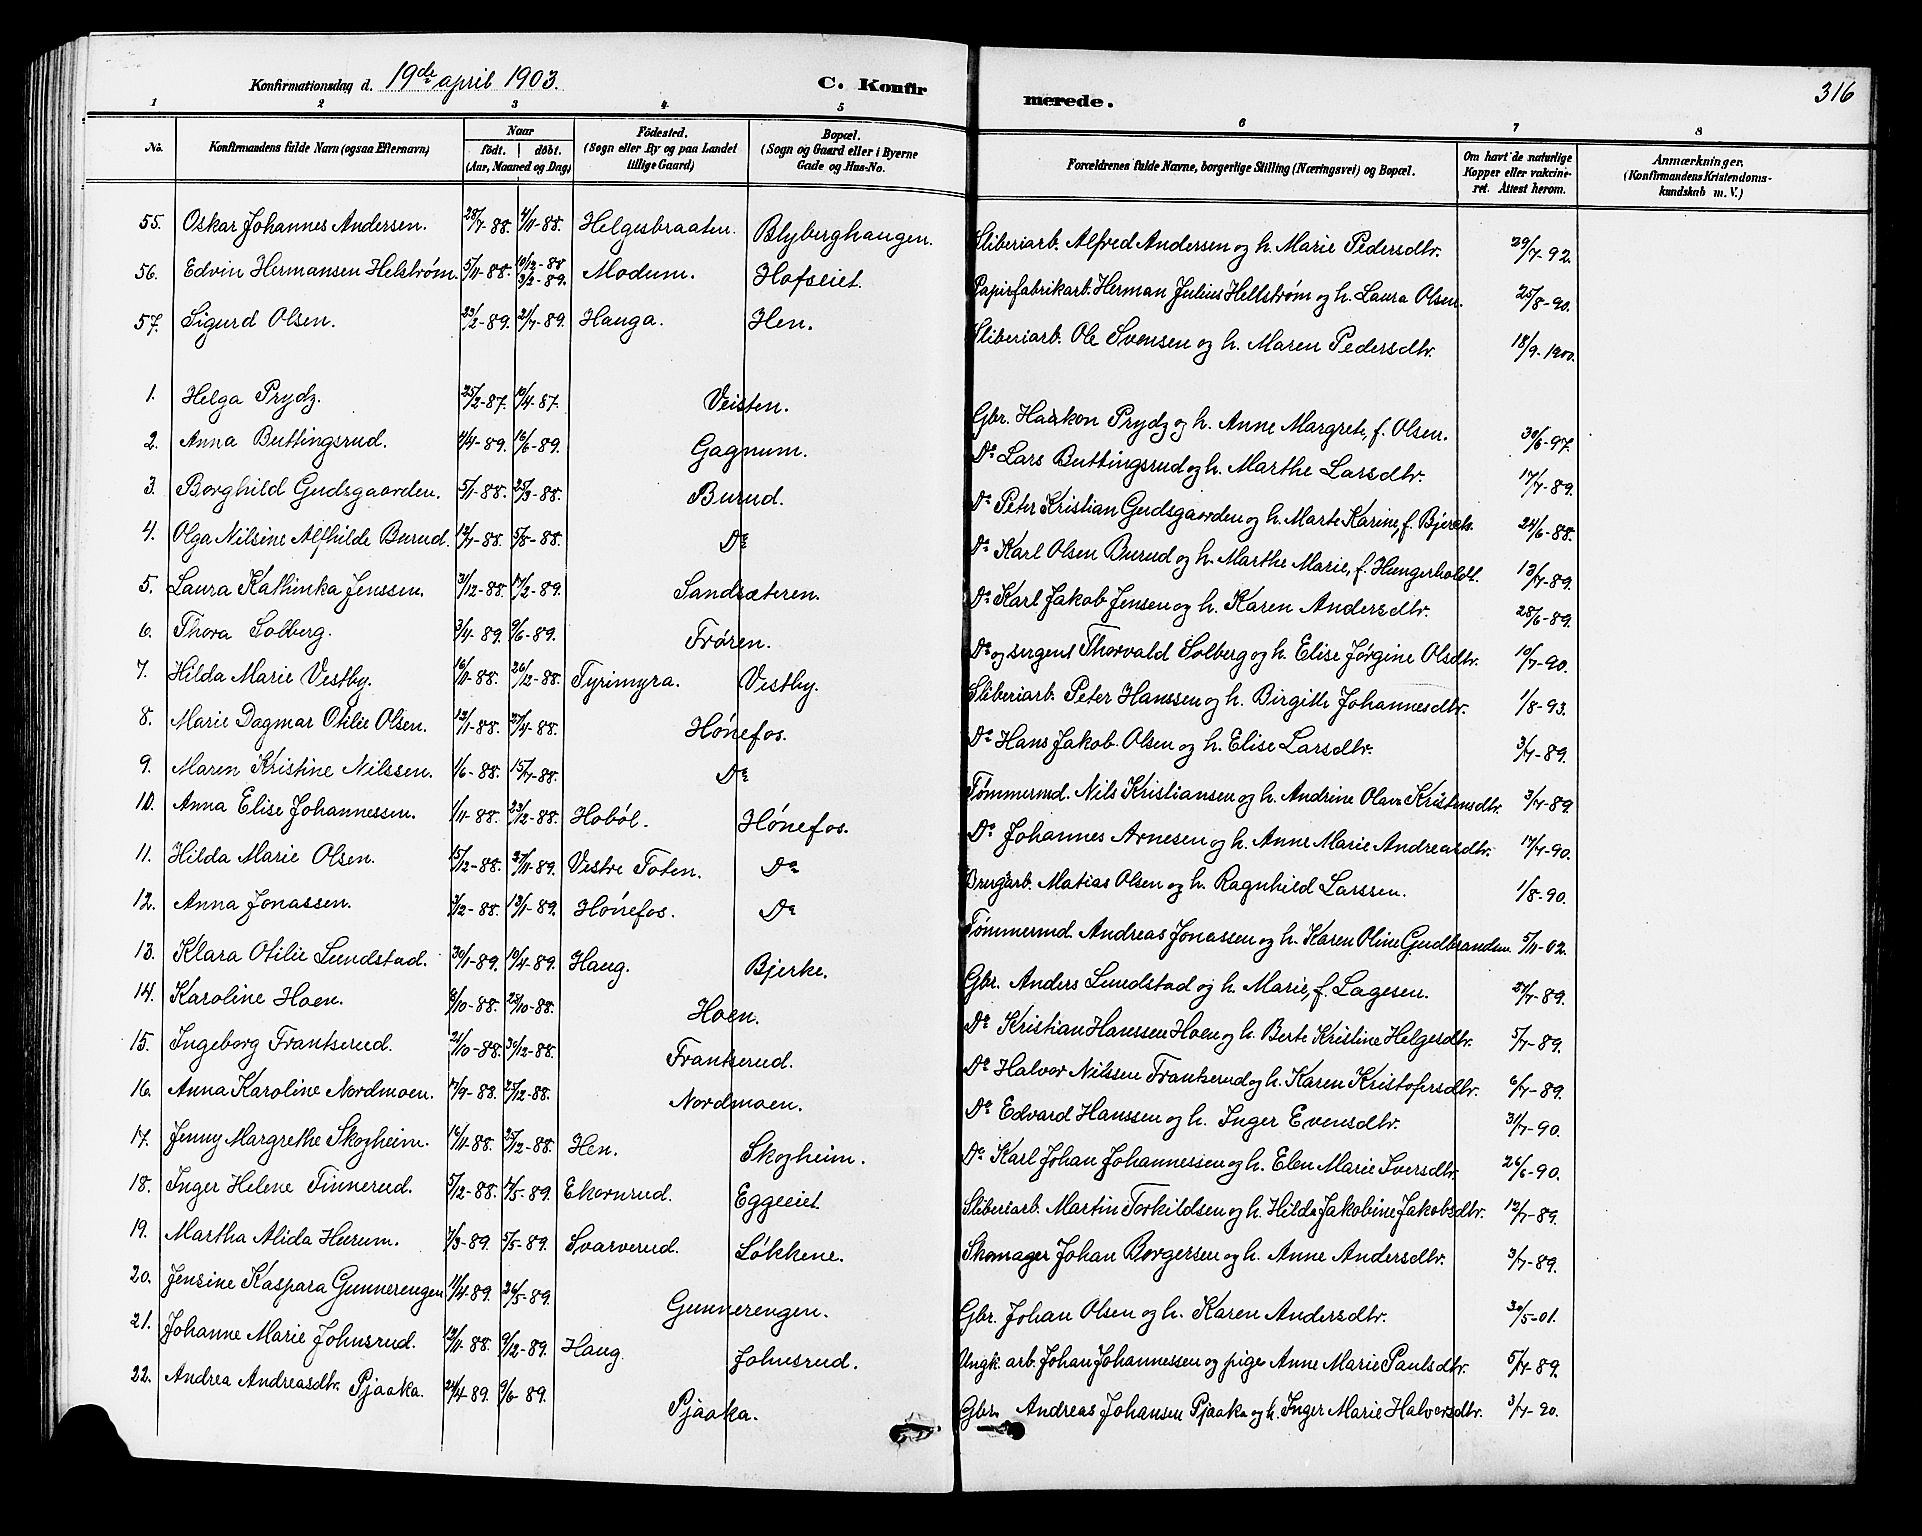 Konfirmationsdag d. 19de april 1903. C. Konfirmerede. 316
1 2 3 4 5 6 7 8
No. Konfirmandens fulde Navn (ogsaa Efternavn) Naar födt. döbt. (Aar, Maaned og Dag) Födested. (Sogn eller By og paa Landet tillige Gaard) Bopæl. (Sogn og Gaard eller i Byerne Gade og Hus-No. Forældrenes fulde Navne, borgerlige Stilling (Næringsvei) og Bopæl. Om havt de naturlige Kopper eller vakcineret. Attest herom. Anmærkninger. (Konfirmandens Kristendomskundskab m. V.)
55. Oskar Johannes Andersen. 28/7-88. 4/11-88. Helgesbraaten. Blyberghaugen. Sliberiarb. Alfred Andersen og h. Marie Pedersdtr. 29/7-92.
56. Edvin Hermansen Helstrøm. 5/11-88. 10/12-88 3/3-89. Modum. Hofseiet. Papirfabrikarb. Herman Julius Hellstrøm og h. Laura Olsen. 25/8-90.
57. Sigurd Olsen. 23/2-89. 2/7-89. Hauga. Hen. Sliberiarb. Ole Svensen og h. Maren Pedersdtr. 18/9-1900.
1. Helga Prydz. 25/2-87. 10/4-87. Veisten. Gbr. Haakon Prydz og h. Anne Margrete, f. Olsen. 30/6-97.
2. Anna Buttingsrud. 4/4-89. 16/6-89. Gagnum. Do Lars Buttingsrud og h. Marthe Larsdtr. 17/7-89.
3. Borghild Gudsgaarden. 5/1-88. 25/3-88. Burud. Do Peter Kristian Gudsgaarden og h. Marte Karine, f. Bjerke. 24/6-88.
4. Olga Nilsine Alfhilde Burud. 12/7-88. 5/8-88. Do Do Karl Olsen Burud og h. Marthe Marie, f. Hungerholdt. 13/7-89.
5. Laura Kathinka Jenssen. 31/12-88. 17/2-89. Sandsæteren. Do Karl Jakob Jensen og h. Karen Andersdtr. 28/6-89.
6. Thora Solberg. 3/4-89. 9/6-89. Trøren. Do og sergent Thorvald Solberg og h. Elise Jørgine Olsdtr. 10/7-90.
7. Hilda Marie Vestby. 16/11-88. 26/12-88. Tyrimyra. Vestby. Sliberiarb. Peter Hanssen og h. Birgitte Johannesdtr. 1/8-93.
8. Marie Dagmar Otilie Olsen. 12/1-88. 27/4-88. Hønefos. Do Hans Jakob Olsen og h. Elise Larsdtr. 3/7-89.
9. Maren Kristine Nilssen. 1/6-88. 15/7-88. Do Tømmermd. Nils Kristiansen og h. Andrine Olava Kristensdtr. 3/7-89
10. Anna Elise Johannessen. 1/11-88. 23/12-88. Hobøl. Hønefos. Do Johannes Arnesen og h. Anne Marie Andreasdtr. 17/7-90.
11. Hilda Marie Olsen. 15/12-88. Vestre Toten. Do Matias Olsen og h. Ragnhild Larssen. 1/8-90.
12. Anna Jonassen. 3/12-88. 13/1-89. Hønefos. Do Tømmermd. Andreas Jonassen og h. Karen Oline Gudbrandsen. 5/11-02.
13. Klara Otilie Lundstad. 30/1-89. 10/4-89. Haug. Bjerke. Gbr. Anders Lundstad og h. Marie, f. Lagesen. 27/7-89.
14. Karoline Hoen. 8/10-88. 28/10-88. Hoen. Do Kristian Hanssen Hoen og h. Berte Kristine Helgesdtr. 5/7-89.
15. Ingeborg Frantserud. 21/10-88. 30/12-88. Frantserud. Do Halvor Nilssen Frantserud og h. Karen Kristofersdtr. 6/7-89.
16. Anna Karoline Nordmoen. 17/9-88. 25/12-88. Nordmoen. Do Edvard Hanssen og h. Inger Evensdtr. 31/7-90.
17. Jenny Margrethe Skogheim. 16/11-88. 25/12-88. Hen. Skogheim. Do Karl Johan Johannessen og h. Elen Marie Iversdtr. 26/6-90.
18. Inger Helene Finnerud. 5/12-88. 17/5-89. Ekornrud. Eggeeiet. Sliberiarb. Martin Torkildsen og h. Hilda Jakobine Jakobsdtr. 12/7-89.
19. Martha Alida Hurum. 7/3-89. 5/5-89. Svarverud. Løkkene. Skomager Johan Borgersen og h. Anne Andersdtr. 3/7-89.
20. Jensine Kaspara Gunnerengen 11/4-89. 26/5-89. Gunnerengen. Gbr. Johan Olsen og h. Karen Andersdtr. 30/5-01.
21. Johanne Marie Johnsrud. 12/11-88. 9/12-89. Haug. Johnsrud. Ungk. arb. Johan Johannessen og pige Anne Marie Paulsdtr. 5/7-89.
22. Andrea Andreasdtr. Pjaaka. 24/4-89. 9/6-89. Pjaaka. Gbr. Andreas Johansen Pjaaka og h. Inger Marie Halvorsdtr. 3/7-90.